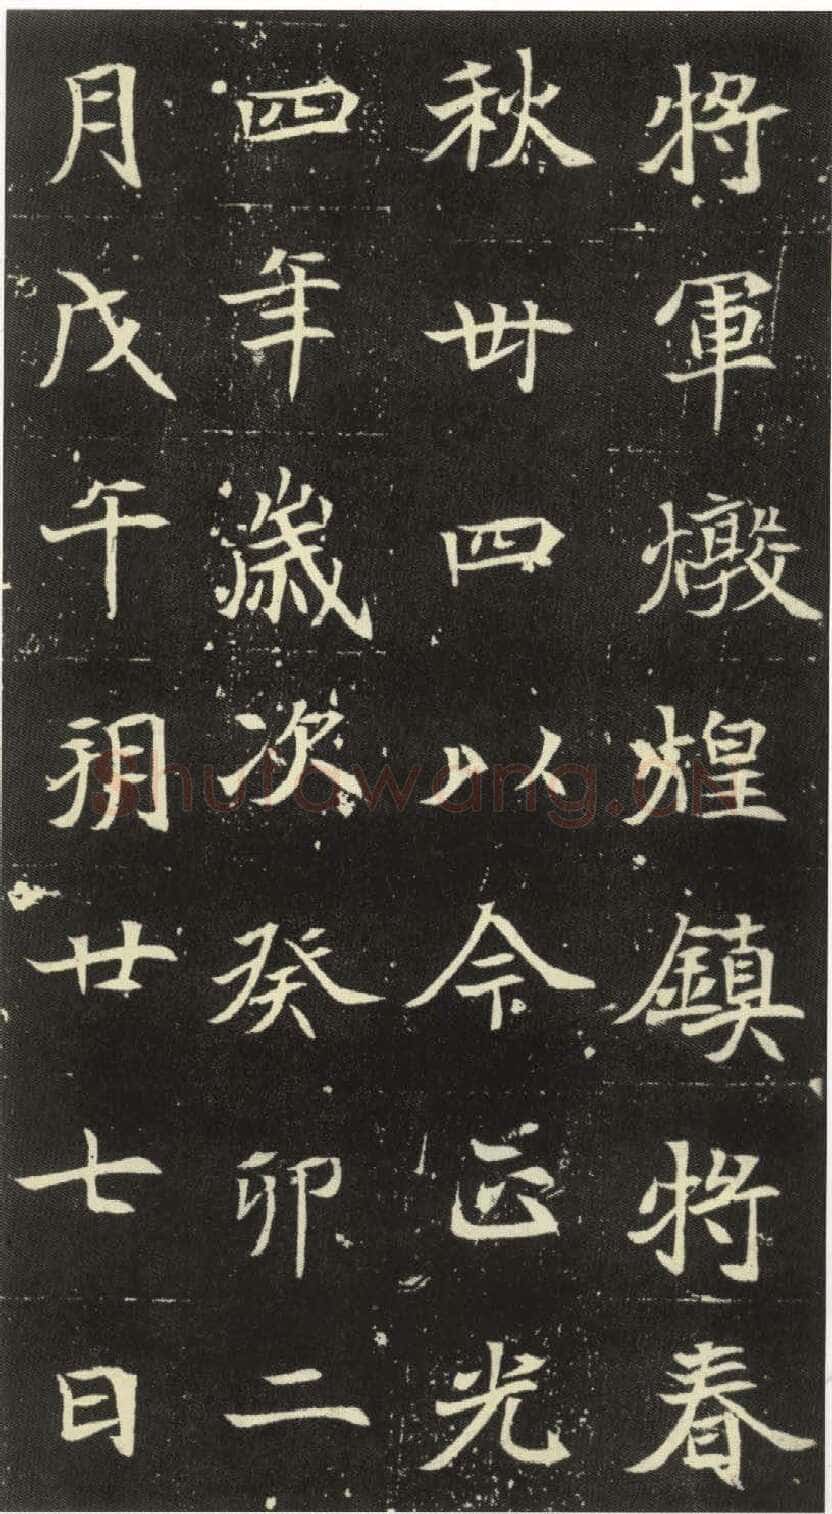 將軍燉煌鎮將春
秋卌四以今正光
四年歲次癸卯二
月戊午朔廿七日
shufawang.cn